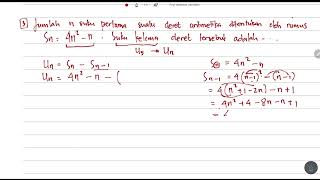 ③ Jumlah n suku pertama suatu deret aritmetika ditentukan oleh rumus
Sn = 4n² - n . Suku kelima deret tersebut adalah ...
U₅ → Un
Un = Sn - Sn-1
Un = 4n² - n - (
Sn = 4n² - n
Sn-1 = 4(n-1)² - (n-1)
= 4(n²+1-2n) - n + 1
= 4n² + 4 - 8n - n + 1
=